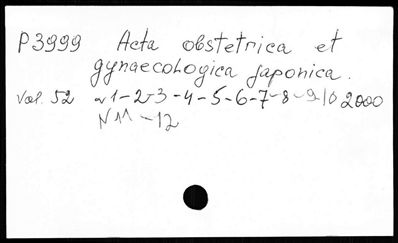 P3999 Acta obstetrica et
gynaecologica japonica.
Vol. 52 N1-2-3-4-5-6-7-8-9/10 2000
N11-12